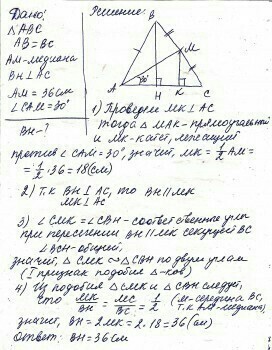 Дано:
△ABC
AB=BC
AM-медиана
BH⊥AC
AM=36см
∠CAM=30°
BH-?
Решение:
B
M
A
30°
H
K
C
1) Проведем MK⊥AC
тогда △MAK-прямоугольный
и MK-катет, лежащий
против ∠CAM=30°, значит, MK=1/2 AM=
=1/2·36=18(см)
2) Т.к BH⊥AC, то BH∥MK
MK⊥AC
3) ∠CMK=∠CBH-соответственные углы
при пересечении BH∥MK секущей BC
∠BCH-общий,
значит, △CMK∼△CBH по двум углам
(I признак подобия △-ков)
4) Из подобия △CMK и △CBH следует,
что MK/BH=MC/BC=1/2 (M-середина BC,
т.к AM-медиана)
значит, BH=2MK=2·18=36(см)
Ответ: BH=36см